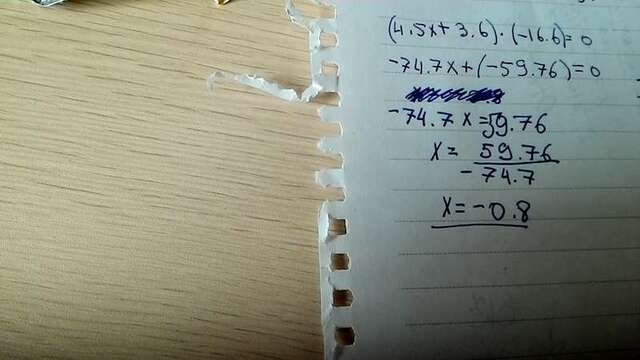 (4.5x+3.6)·(-16.6)=0
-74.7x+(-59.76)=0
-74.7x=59.76
x= 59.76
-74.7
x=-0.8